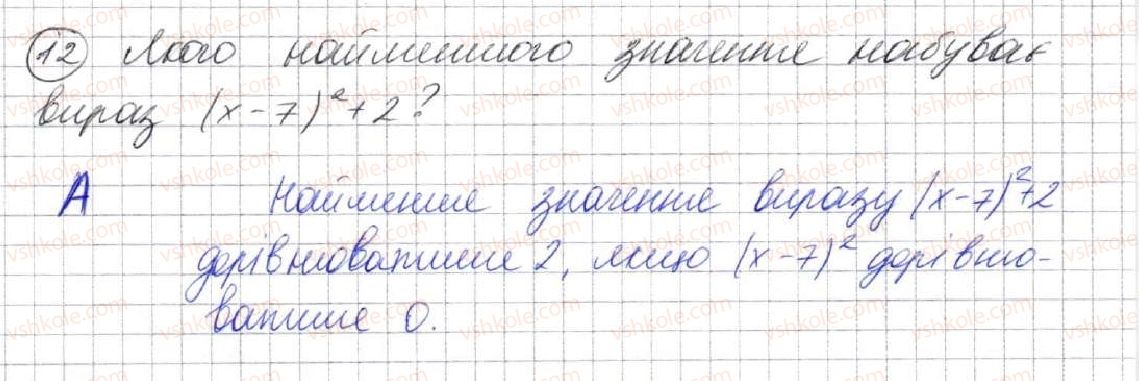 12 Якого найменшого значення набуває
вираз (x-7)²+2?
А Найменше значення виразу (x-7)²+2
дорівнюватиме 2, якщо (x-7)² дорівню-
ватиме 0.